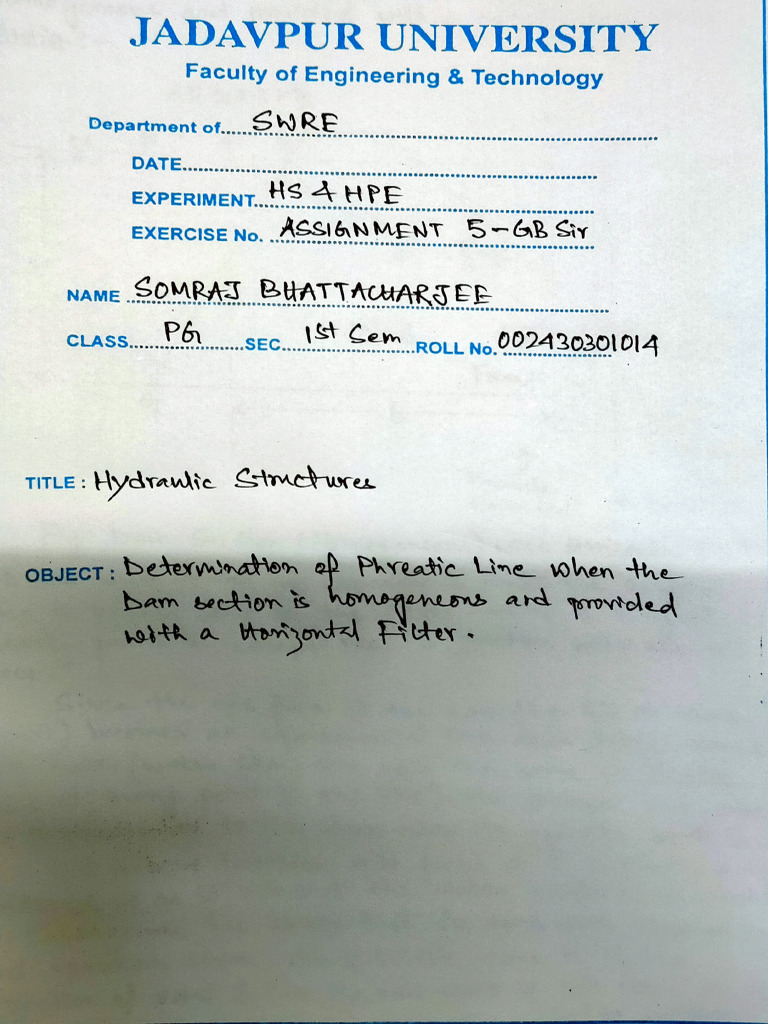 JADAVPUR UNIVERSITY
Faculty of Engineering & Technology
Department of..... SWRE
DATE
EXPERIMENT.. HS & HPE
EXERCISE No. ASSIGNMENT 5-GB Sir
NAME SOMRAJ BHATTACHARJEE
CLASS PG SEC. 1st Sem ROLL No. 002430301014
TITLE : Hydraulic Structures
OBJECT : Determination of Phreatic Line when the
Dam section is homogeneous and provided
with a Horizontal Filter.